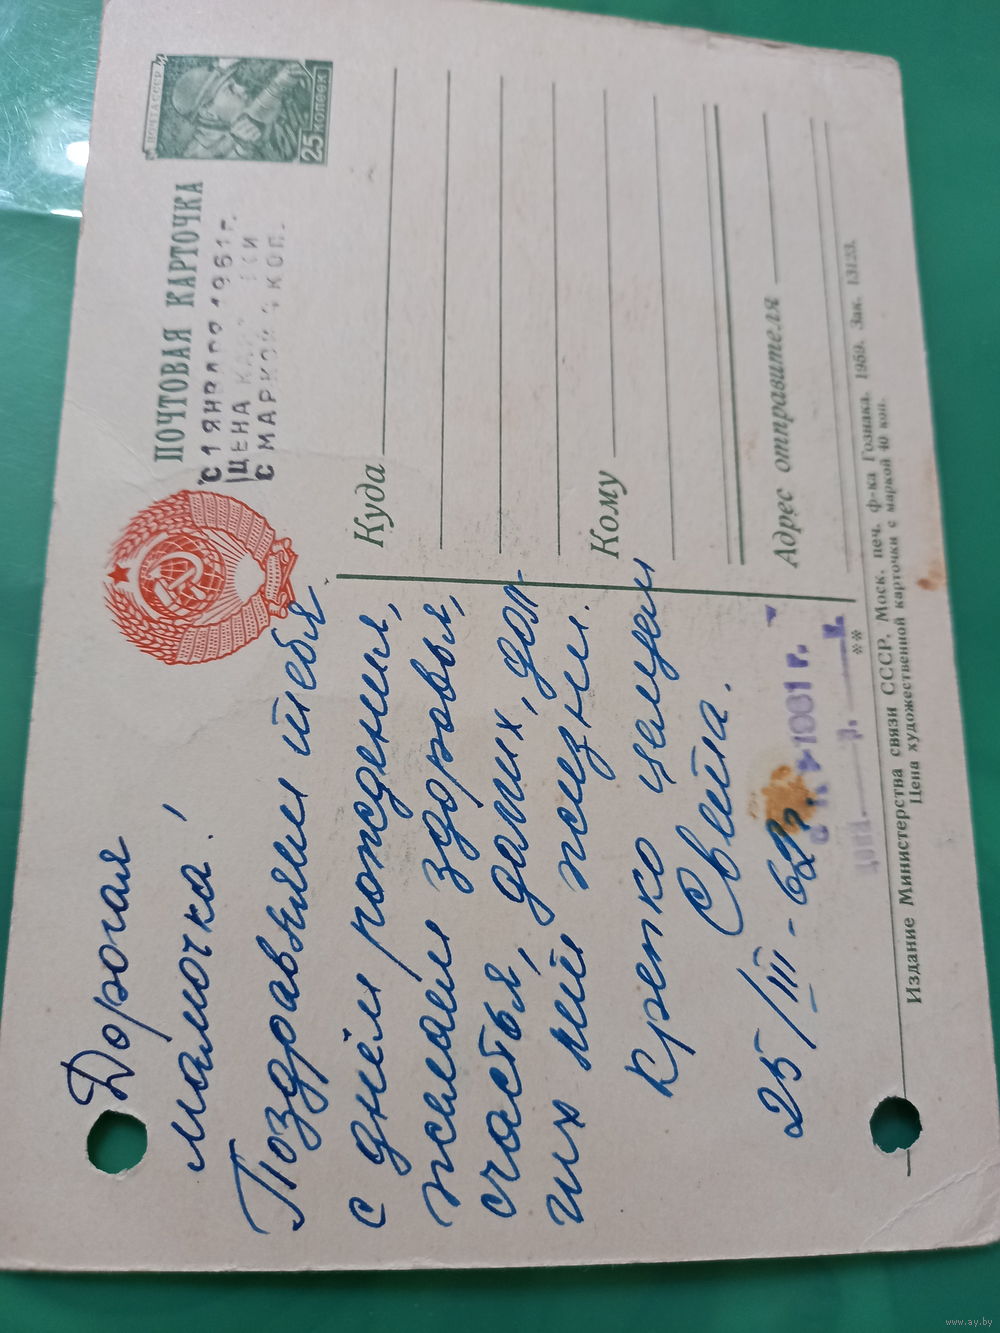 Дорогая
мамочка!
Поздравляем тебя
с днём рождения,
желаем здоровья,
счастья, долгих, дол
гих лет жизни.
крепко целуем
Света.
25/III-62г.
ПОЧТА СССР
25 КОПЕЕК
ПОЧТОВАЯ КАРТОЧКА
С 1 ЯНВАРЯ 1961г.
ЦЕНА
С МАРКОЙ 4 КОП.
Куда
Кому
Адрес отправителя
1961 г.
**
Издание Министерства связи СССР. Моск. печ. ф-ка Гознака. 1959. Зак. 13123.
Цена художественной карточки с маркой 40 коп.
www.ay.by